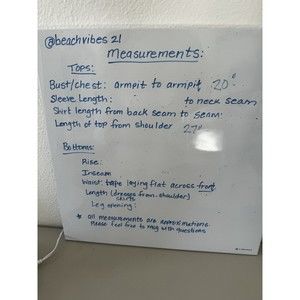 @beachvibes21
Measurements:
Tops:
Bust/chest: armpit to armpit 20"
Sleeve Length: to neck seam
Shirt length from back seam to seam:
Length of top from shoulder 27"
Bottoms:
Rise:
Inseam
Waist: tape laying flat across front
Length (dresses from shoulder)
skirts
Leg opening:
* all measurements are approximations.
Please feel free to msg with questions